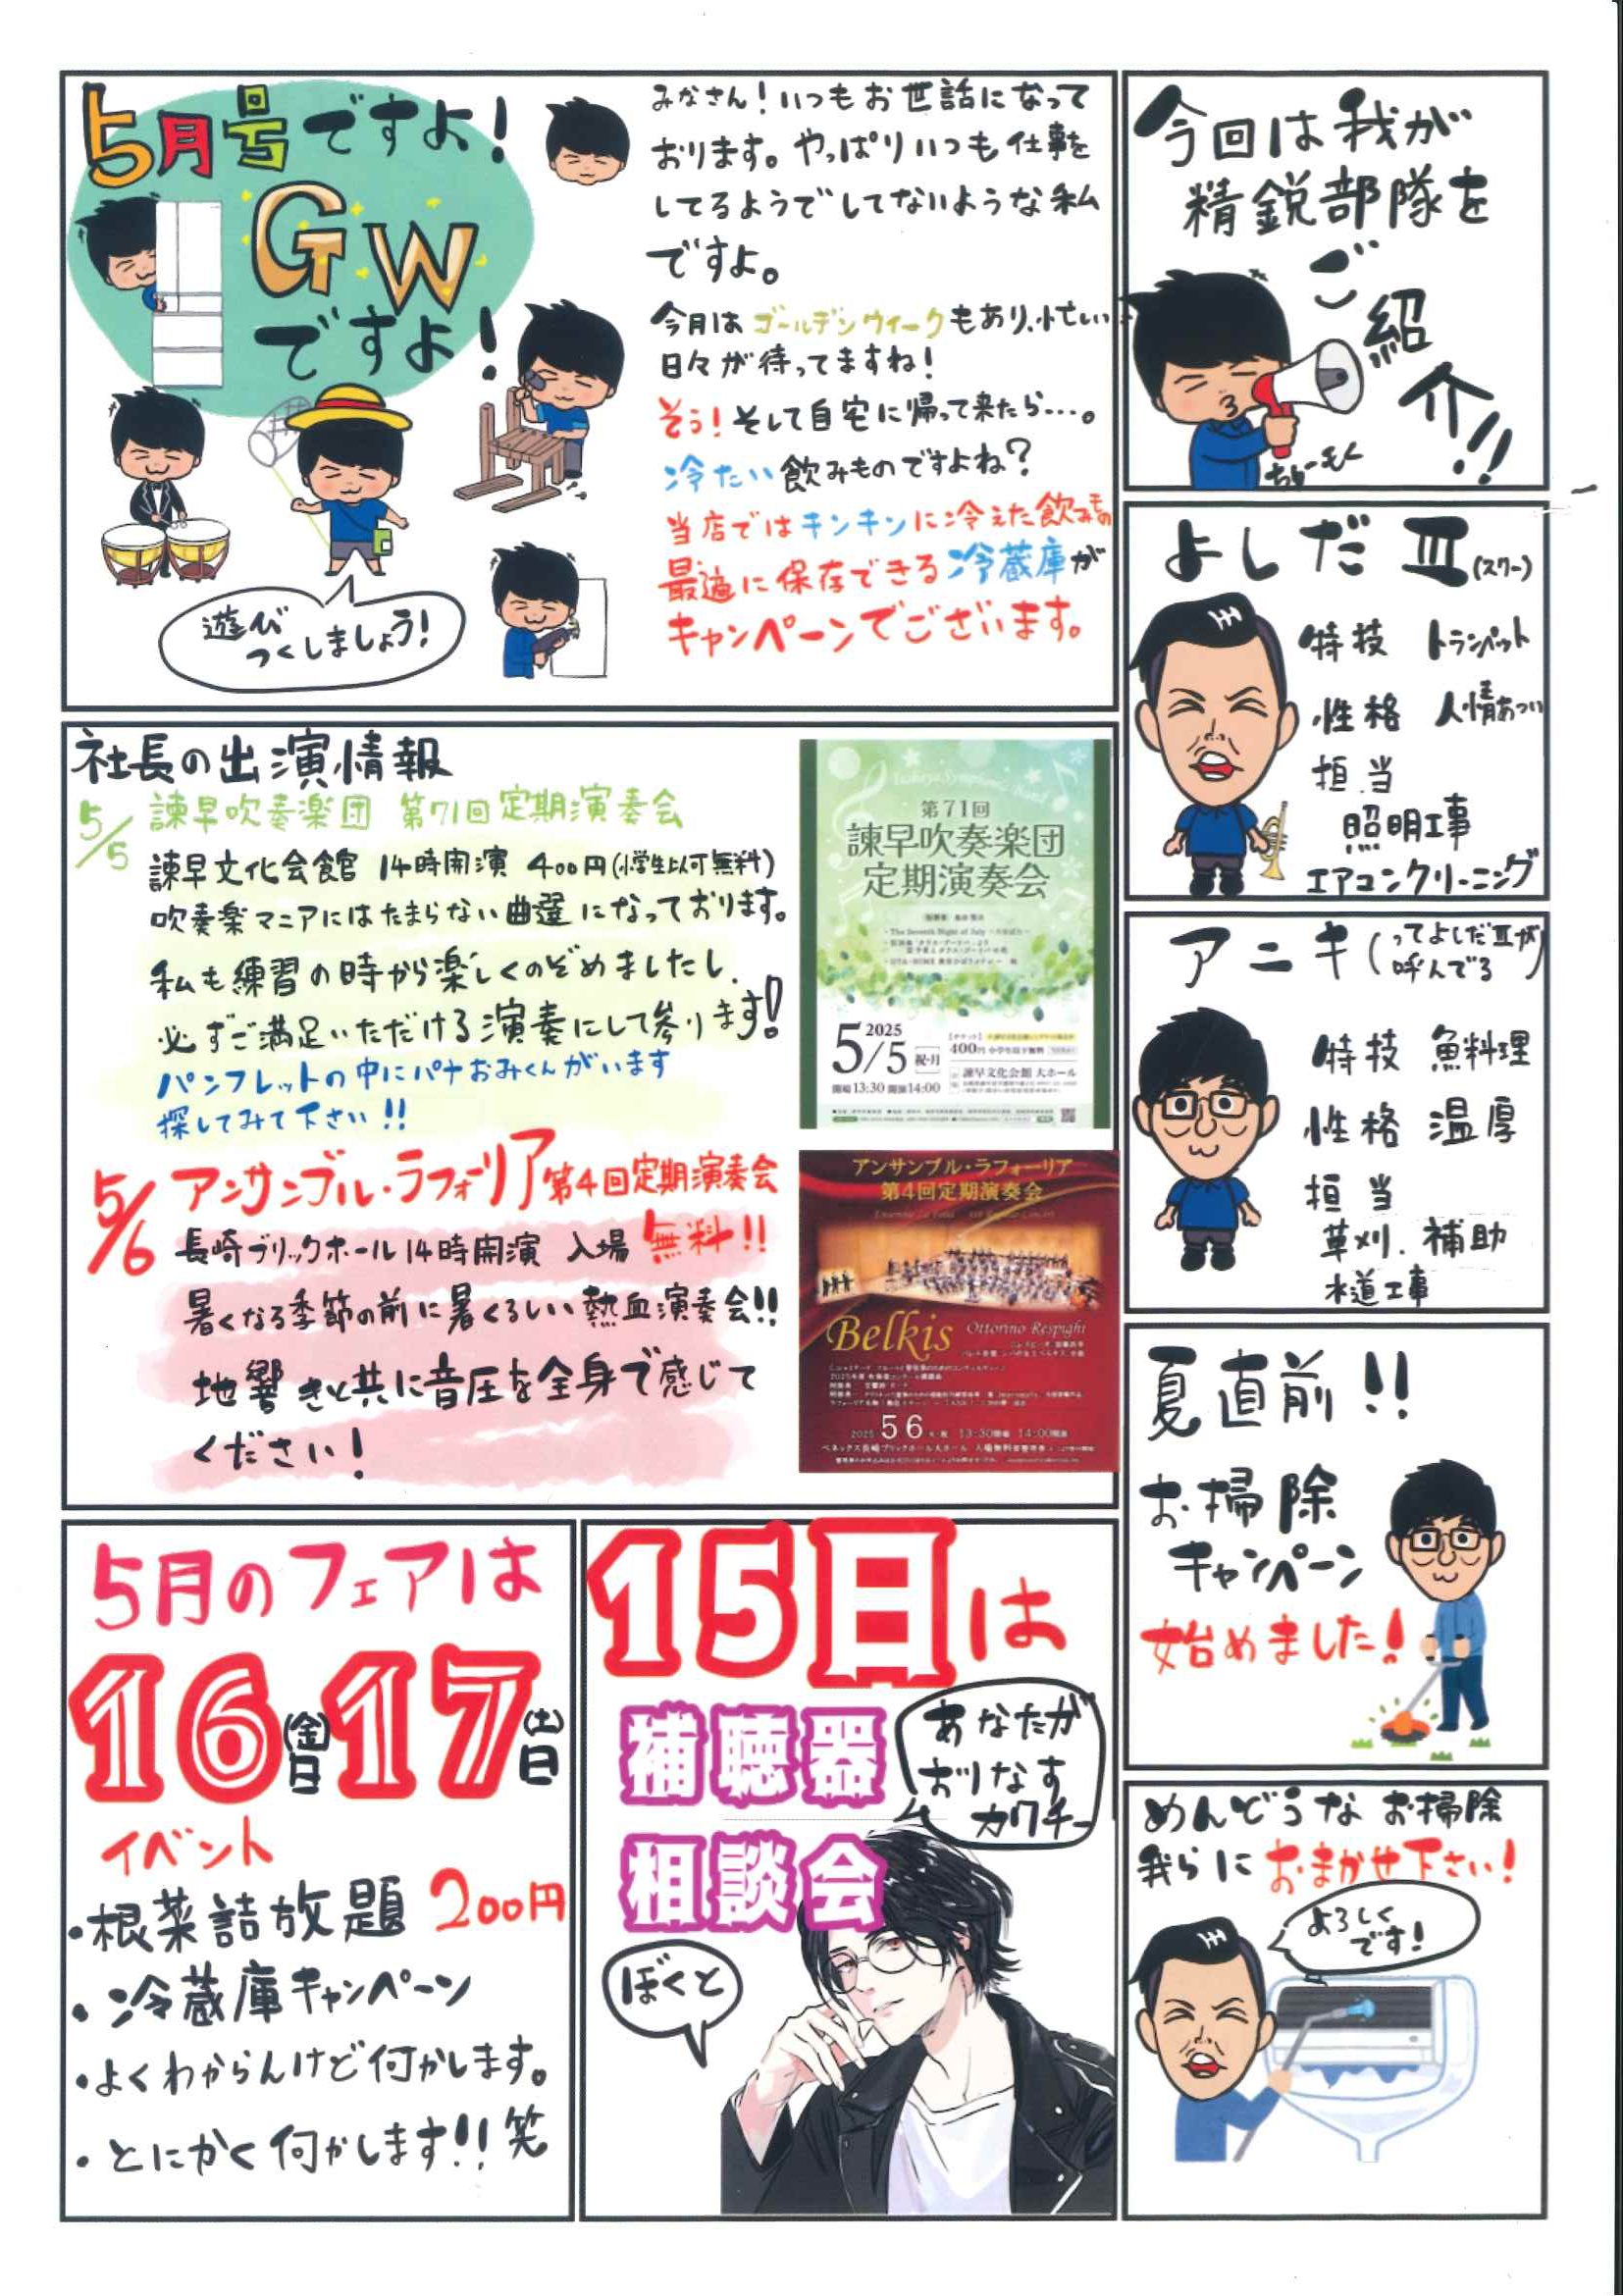 5月号ですよ!
GW
ですよ!
遊び
つくしましょう!
みなさん!いつもお世話になって
おります。やっぱりいつも仕事を
してるようでしてないような私
ですよ。
今月はゴールデンウィークもあり、忙しい
日々が待ってますね!
そう!そして自宅に帰って来たら…。
冷たい飲みものですよね?
当店ではキンキンに冷えた飲みもの
最適に保存できる冷蔵庫が
キャンペーンでございます。
今回は我が
精鋭部隊を
ご紹介!!
よしだⅢ(スリー)
特技 トランペット
性格 人情あつい
担当
照明工事
エアコンクリーニング
アニキ(ってよしだⅢが
呼んでる)
特技 魚料理
性格 温厚
担当
草刈.補助
水道工事
夏直前!!
お掃除
キャンペーン
始めました!
めんどうなお掃除
我らにおまかせ下さい!
よろしく
です!
社長の出演情報
5/5 諫早吹奏楽団 第71回定期演奏会
諫早文化会館 14時開演 400円(小学生以下無料)
吹奏楽マニアにはたまらない曲選になっております。
私も練習の時から楽しくのぞめましたし、
必ずご満足いただける演奏にして参ります!
パンフレットの中にパナおみくんがいます
探してみて下さい!!
第71回
諫早吹奏楽団
定期演奏会
2025
5/5 祝・月
400円 小学生以下無料
諫早文化会館 大ホール
開場13:30 開演14:00
5/6 アンサンブル・ラフォーリア第4回定期演奏会
長崎ブリックホール14時開演 入場無料!!
暑くなる季節の前に暑くるしい熱血演奏会!!
地響きと共に音圧を全身で感じて
ください!
アンサンブル・ラフォーリア
第4回定期演奏会
Belkis Ottorino Respighi
2025 5 6 13:30開場 14:00開演
ベネックス長崎ブリックホール大ホール 入場無料
5月のフェアは
16(金)日17(土)日
イベント
・根菜詰放題 200円
・冷蔵庫キャンペーン
・よくわからんけど何かします。
・とにかく何かします!!笑
15日は
補聴器
相談会
あなたが
おりなす
カワチー
ぼくと